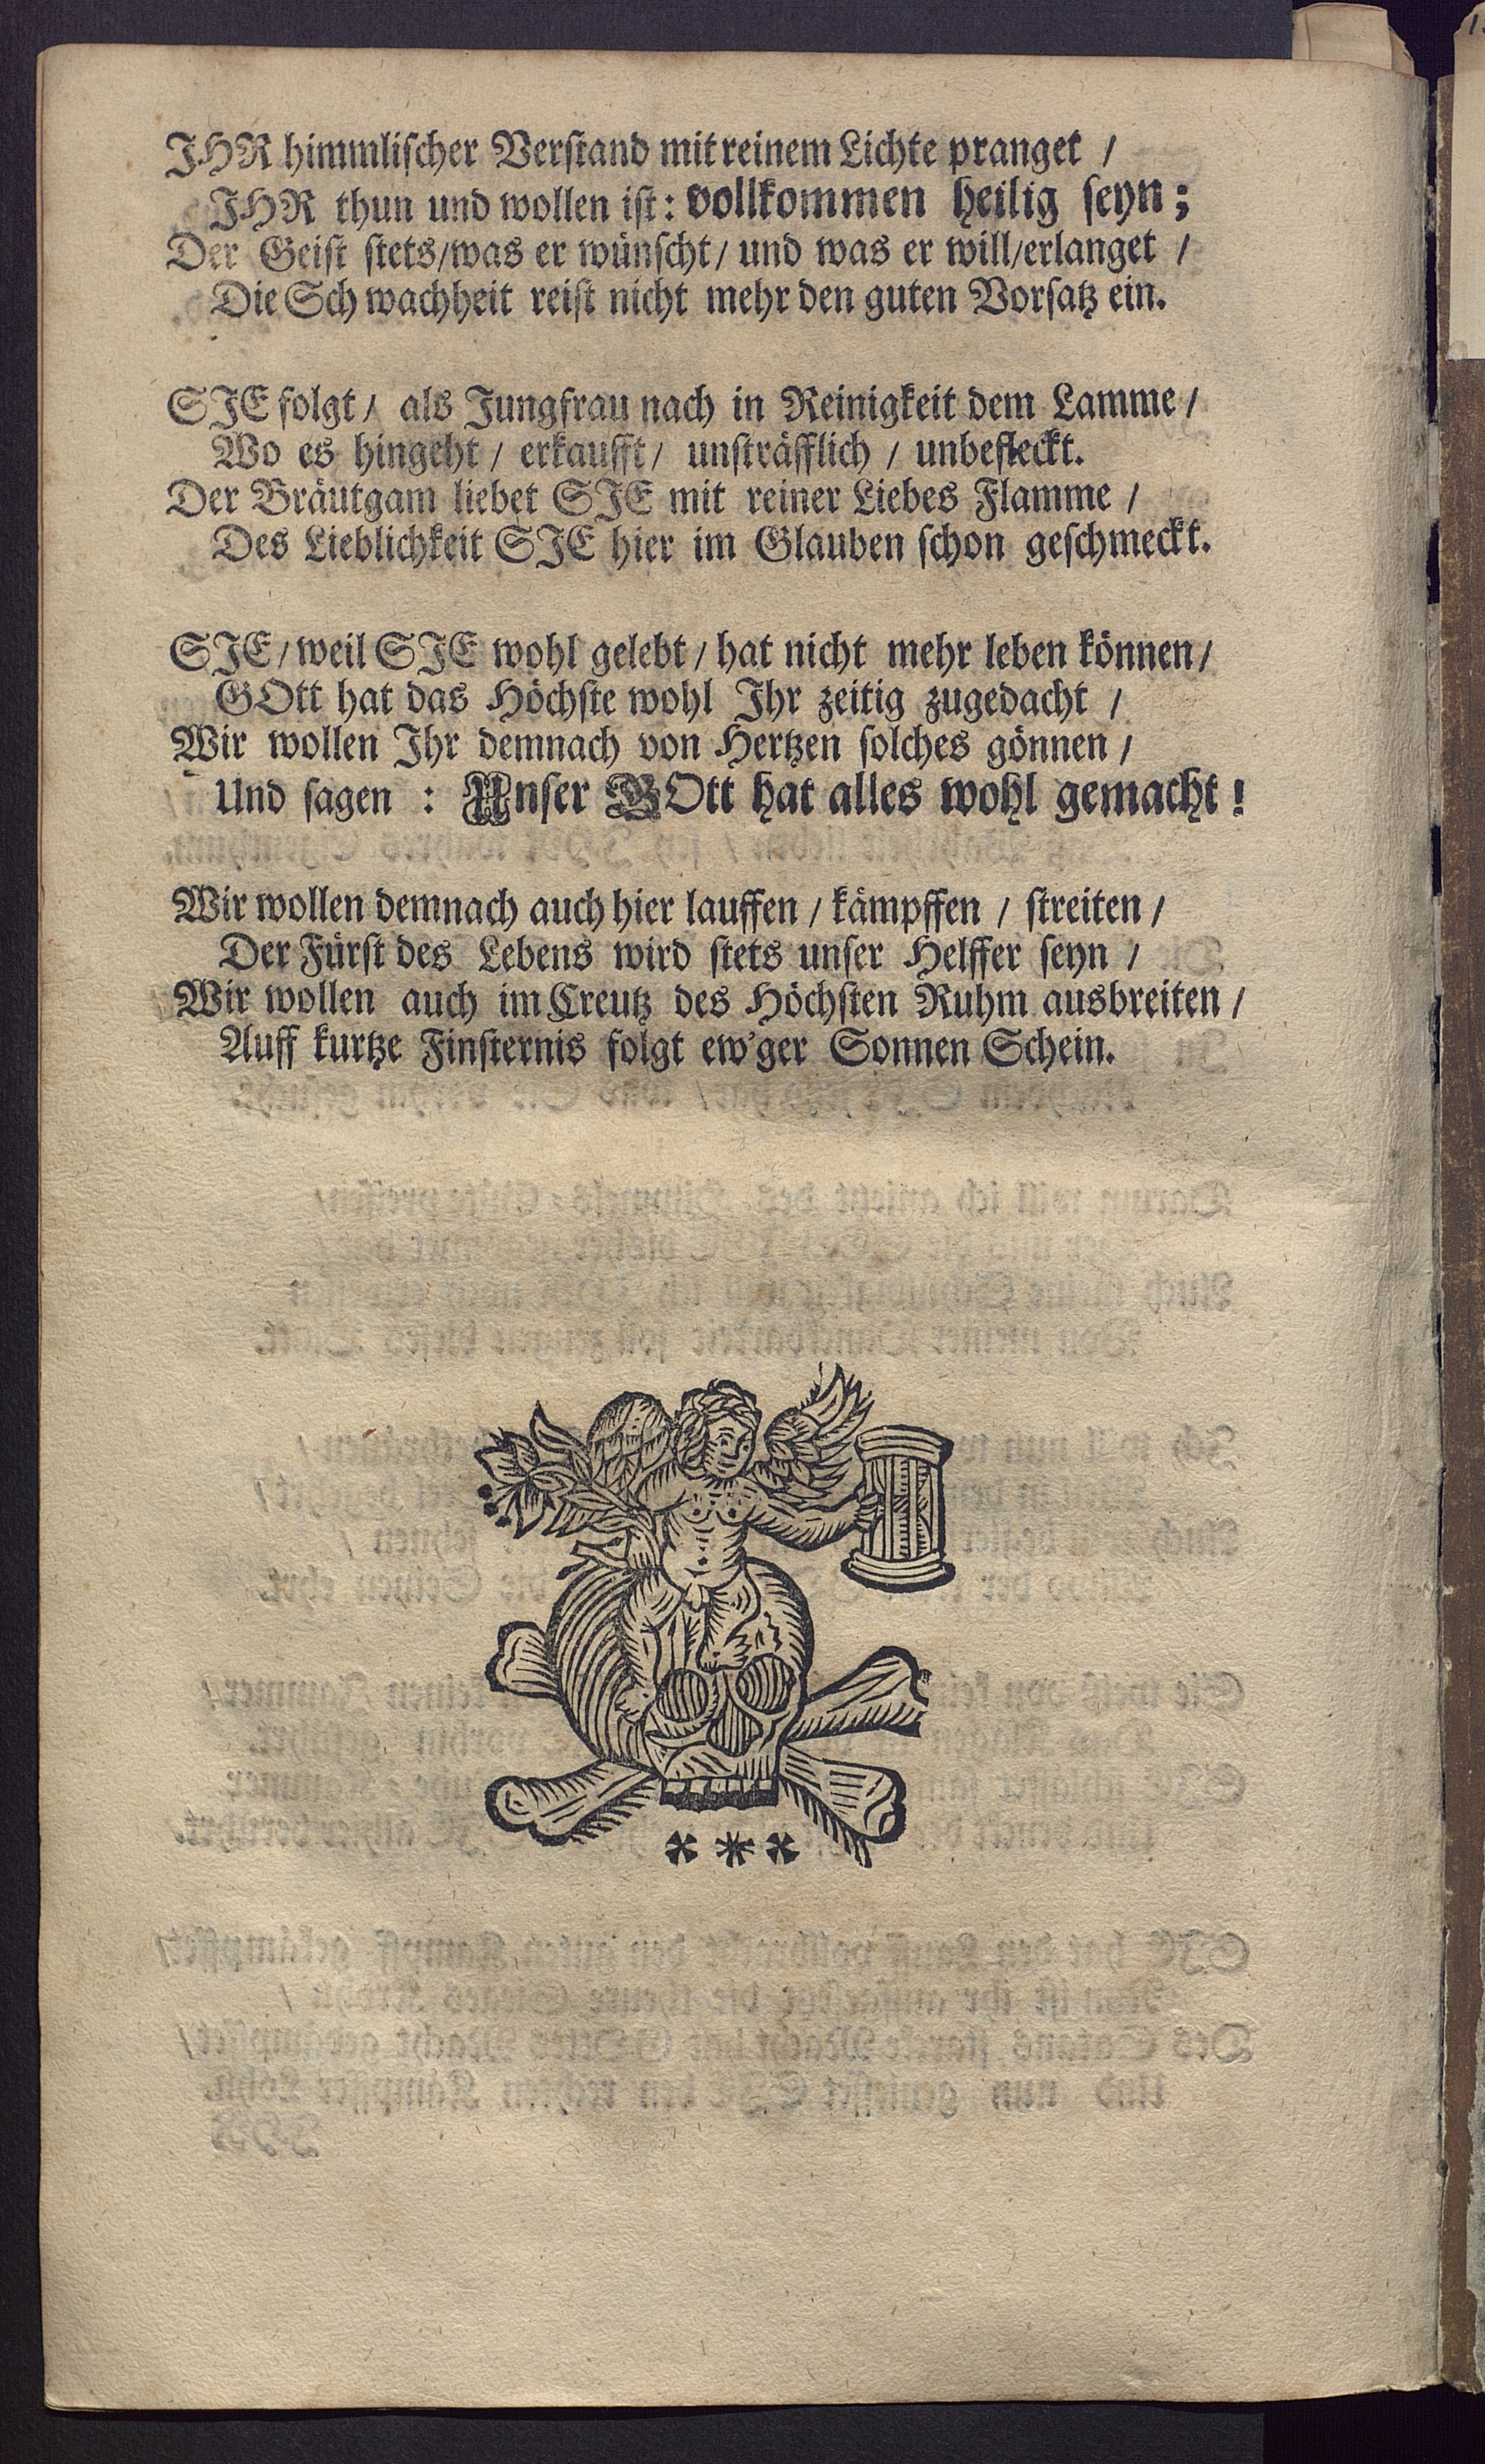 JHR himmliſcher Verſtand mit reinem Lichte pranget /
JHR thun und wollen iſt: vollkommen heilig ſeyn;
Der Geiſt ſtets/was er wünſcht/ und was er will/erlanget /
Die Sch wachheit reiſt nicht mehr den guten Vorſatz ein.

SJE folgt / als Jungfrau nach in Reinigkeit dem Lamme /
Wo es hingeht / erkaufft / unſträfflich / unbefleckt.
Der Bräutgam liebet SJE mit reiner Liebes Flamme /
Des Lieblichkeit SJE hier im Glauben ſchon geſchmeckt.

SJE / weil SJE wohl gelebt / hat nicht mehr leben können /
GOtt hat das Höchſte wohl Jhr zeitig zugedacht /
Wir wollen Jhr demnach von Hertzen ſolches gönnen /
Und ſagen : Unſer GOtt hat alles wohl gemacht !

Wir wollen demnach auch hier lauffen / kämpffen / ſtreiten /
Der Fürſt des Lebens wird ſtets unſer Helffer ſeyn /
Wir wollen auch im Creutz des Höchſten Ruhm ausbreiten /
Auff kurtze Finſternis folgt ew'ger Sonnen Schein.

* * *